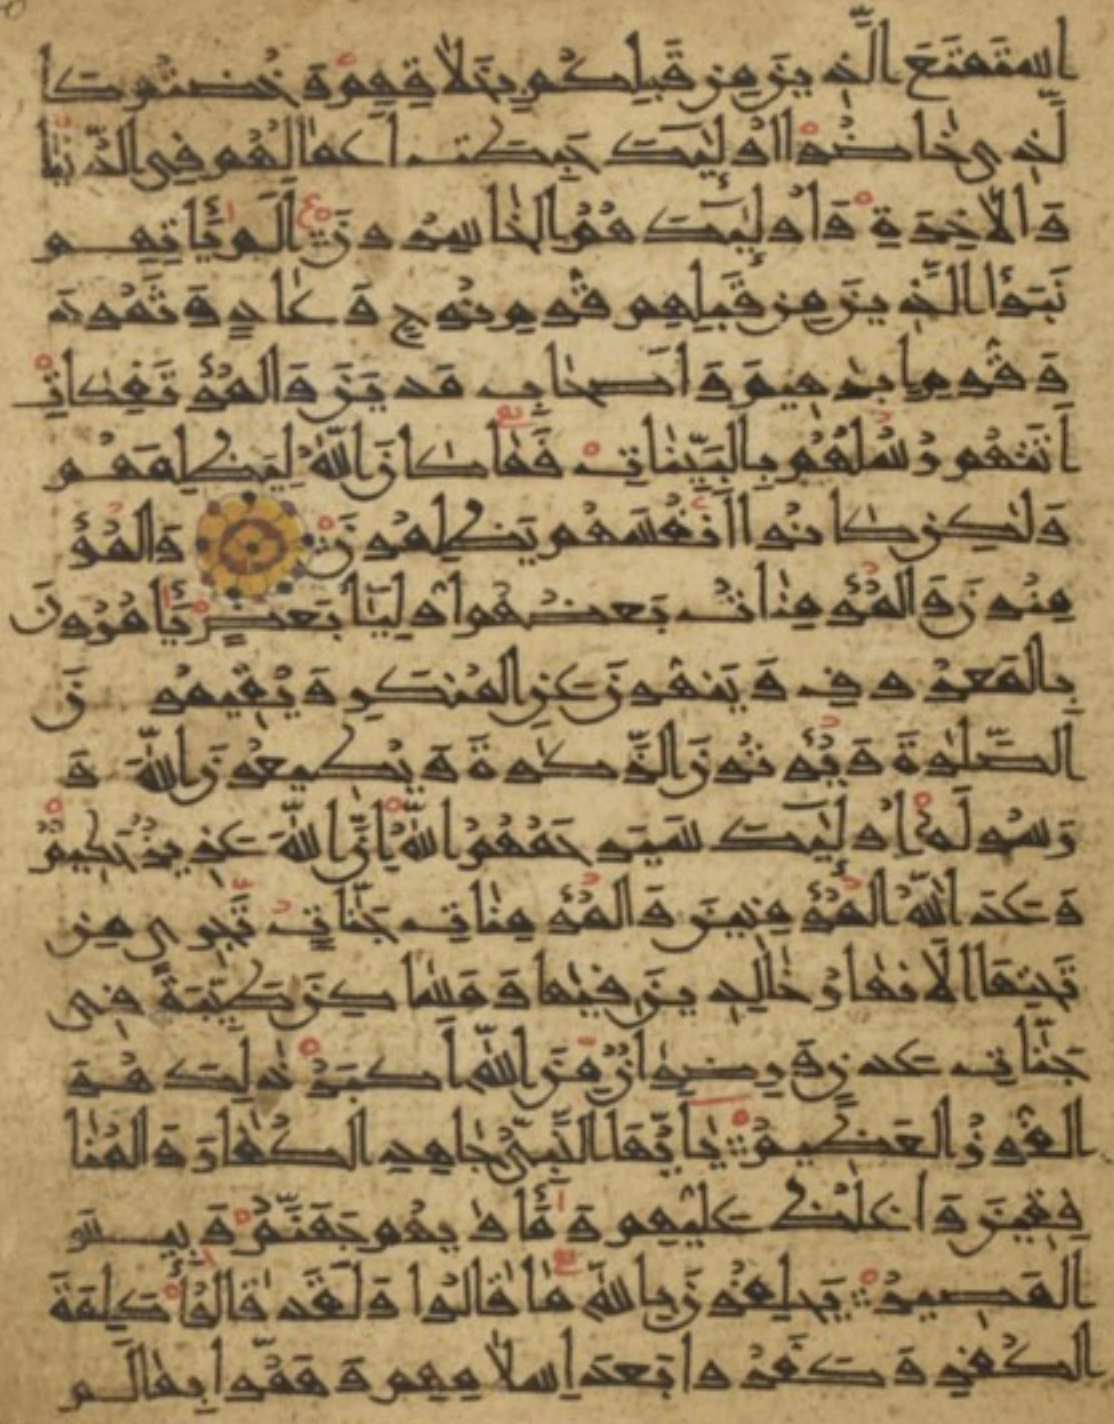 استمتع الذين من قبلكم بخلاقهم وخضتم كا
لذي خاضوا أولئك حبطت أعمالهم في الدنيا
والآخرة وأولئك هم الخاسرون ألم يأتهم
نبأ الذين من قبلهم قوم نوح وعاد وثمود
وقوم إبراهيم وأصحاب مدين والمؤتفكات
أتتهم رسلهم بالبينات فما كان الله ليظلمهم
ولكن كانوا أنفسهم يظلمون والمؤ
منون والمؤمنات بعضهم أولياء بعض يأمرون
بالمعروف وينهون عن المنكر ويقيمون
الصلوة ويؤتون الزكوة ويطيعون الله و
رسوله أولئك سيرحمهم الله إن الله عزيز حكيم
وعد الله المؤمنين والمؤمنات جنات تجري من
تحتها الأنهار خالدين فيها ومساكن طيبة في
جنات عدن ورضوان من الله أكبر ذلك هو
الفوز العظيم يا أيها النبي جاهد الكفار والمنا
فقين واغلظ عليهم ومأواهم جهنم وبئس
المصير يحلفون بالله ما قالوا ولقد قالوا كلمة
الكفر وكفروا بعد إسلامهم وهموا بما لم